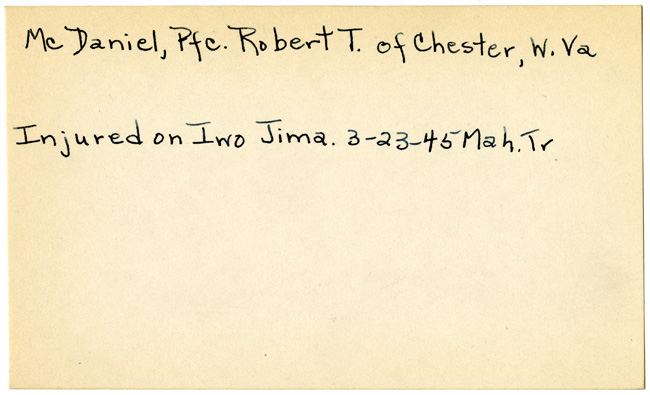 McDaniel, Pfc. Robert T. of Chester, W. Va
Injured on Iwo Jima. 3-23-45 Mah. Tr